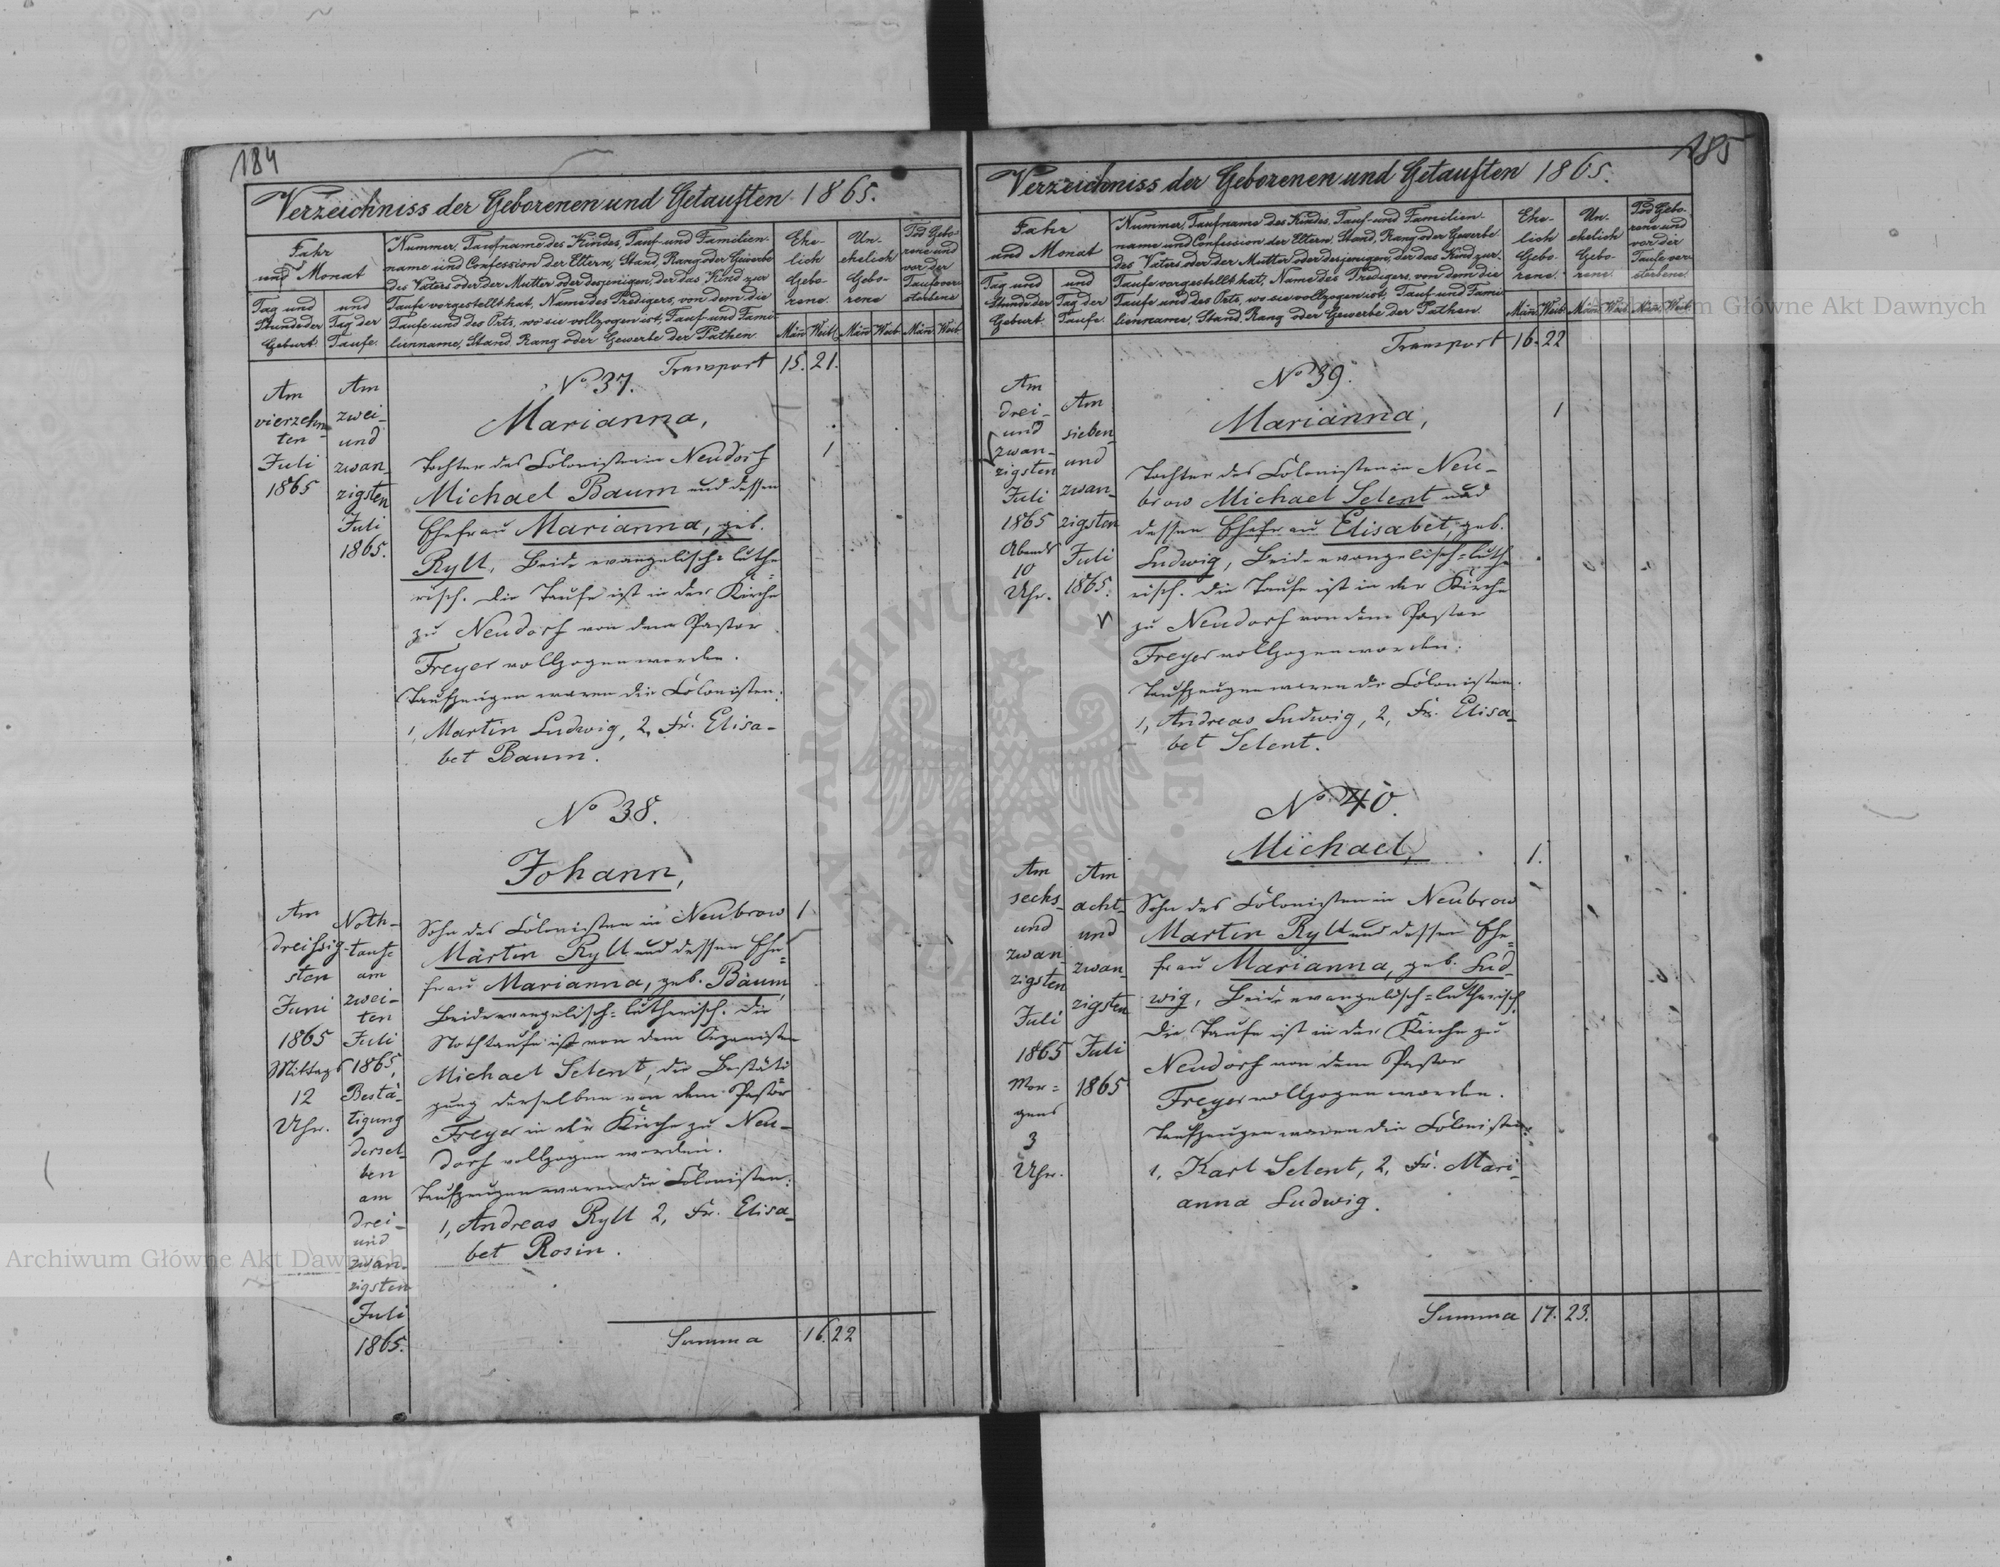 184
Verzeichniss der Geborenen und Getauften 1865.
Jahr
und Monat
Tag und
Stunde der
Geburt.
und
Tag der
Taufe.
Nummer, Taufname des Kindes, Tauf- und Familien-
name und Confession der Eltern, Stand, Rang oder Gewerbe
des Vaters oder der Mutter oder desjenigen, der das Kind zur
Taufe vorgestellt hat, Name des Predigers, von dem die
Taufe und des Orts, wo sie vollzogen ist, Tauf- und Fami-
lienname, Stand, Rang oder Gewerbe der Pathen.
Ehe-
lich
Gebo-
rene.
Un-
ehelich
Gebo-
rene
Tod Gebo-
rene und
vor der
Taufe ver-
storbene
Män. Weib. Män. Weib. Män. Weib
Transport 15. 21.
No 37.
Marianna,
Am
vierzehn-
ten
Juli
1865
Am
zwei-
und
zwan-
zigsten
Juli
1865.
Tochter des Colonisten in Neudorf
Michael Baum und dessen
Ehefrau Marianna, geb.
Ryll, Beide evangelisch-luthe-
risch. Die Taufe ist in der Kirche
zu Neudorf von dem Pastor
Freyer vollzogen worden.
Taufzeugen waren die Colonisten:
1, Martin Ludwig, 2, Fr. Elisa-
bet Baum.
1
No 38.
Johann,
Am
dreissig-
sten
Juni
1865
Mittags
12
Uhr.
Noth-
taufe
am
zwei-
ten
Juli
1865,
Bestä-
tigung
dersel-
ben
am
drei-
und
zwan-
zigsten
Juli
1865.
Sohn des Colonisten in Neubrow
Martin Ryll und dessen Ehe-
frau Marianna, geb. Baum
Beide evangelisch-lutherisch. Die
Nothtaufe ist von dem Organisten
Michael Selent, die Bestäti
gung derselben von dem Pastor
Freyer in der Kirche zu Neu-
dorf vollzogen worden.
Taufzeugen waren die Colonisten:
1, Andreas Ryll 2, Fr. Elisa-
bet Rosin.
1
Summa 16. 22
185
Verzeichniss der Geborenen und Getauften 1865.
Jahr
und Monat
Tag und
Stunde der
Geburt.
und
Tag der
Taufe.
Nummer, Taufname des Kindes, Tauf- und Familien-
name und Confession der Eltern, Stand, Rang oder Gewerbe
des Vaters oder der Mutter oder desjenigen, der das Kind zur
Taufe vorgestellt hat, Name des Predigers, von dem die
Taufe und des Orts, wo sie vollzogen ist, Tauf- und Fami-
lienname, Stand, Rang oder Gewerbe der Pathen.
Ehe-
lich
Gebo-
rene.
Un-
ehelich
Gebo-
rene.
Tod Gebo-
rene und
vor der
Taufe ver-
storbene.
Män. Weib. Män. Weib. Män. Weib
Transport 16. 22
No 39.
Marianna,
Am
drei-
und
zwan-
zigsten
Juli
1865
Abends
10
Uhr.
Am
sieben-
und
zwan-
zigsten
Juli
1865.
Tochter des Colonisten in Neu-
brow Michael Selent und
dessen Ehefrau Elisabet, geb.
Ludwig, Beide evangelisch-luthe-
risch. Die Taufe ist in der Kirche
zu Neudorf von dem Pastor
Freyer vollzogen worden.
Taufzeugen waren die Colonisten:
1, Andreas Ludwig, 2, Fr. Elisa-
bet Selent.
1
No 40.
Michael,
Am
sechs-
und
zwan-
zigsten
Juli
1865
Mor-
gens
3
Uhr.
Am
acht-
und
zwan-
zigsten
Juli
1865
Sohn des Colonisten in Neubrow
Martin Ryll und dessen Ehe-
frau Marianna, geb. Lud-
wig, Beide evangelisch-lutherisch.
Die Taufe ist in der Kirche zu
Neudorf von dem Pastor
Freyer vollzogen worden.
Taufzeugen waren die Colonisten:
1, Karl Selent, 2, Fr. Mari-
anna Ludwig.
1.
Summa 17. 23.
Archiwum Główne Akt Dawnych
Archiwum Główne Akt Dawnych